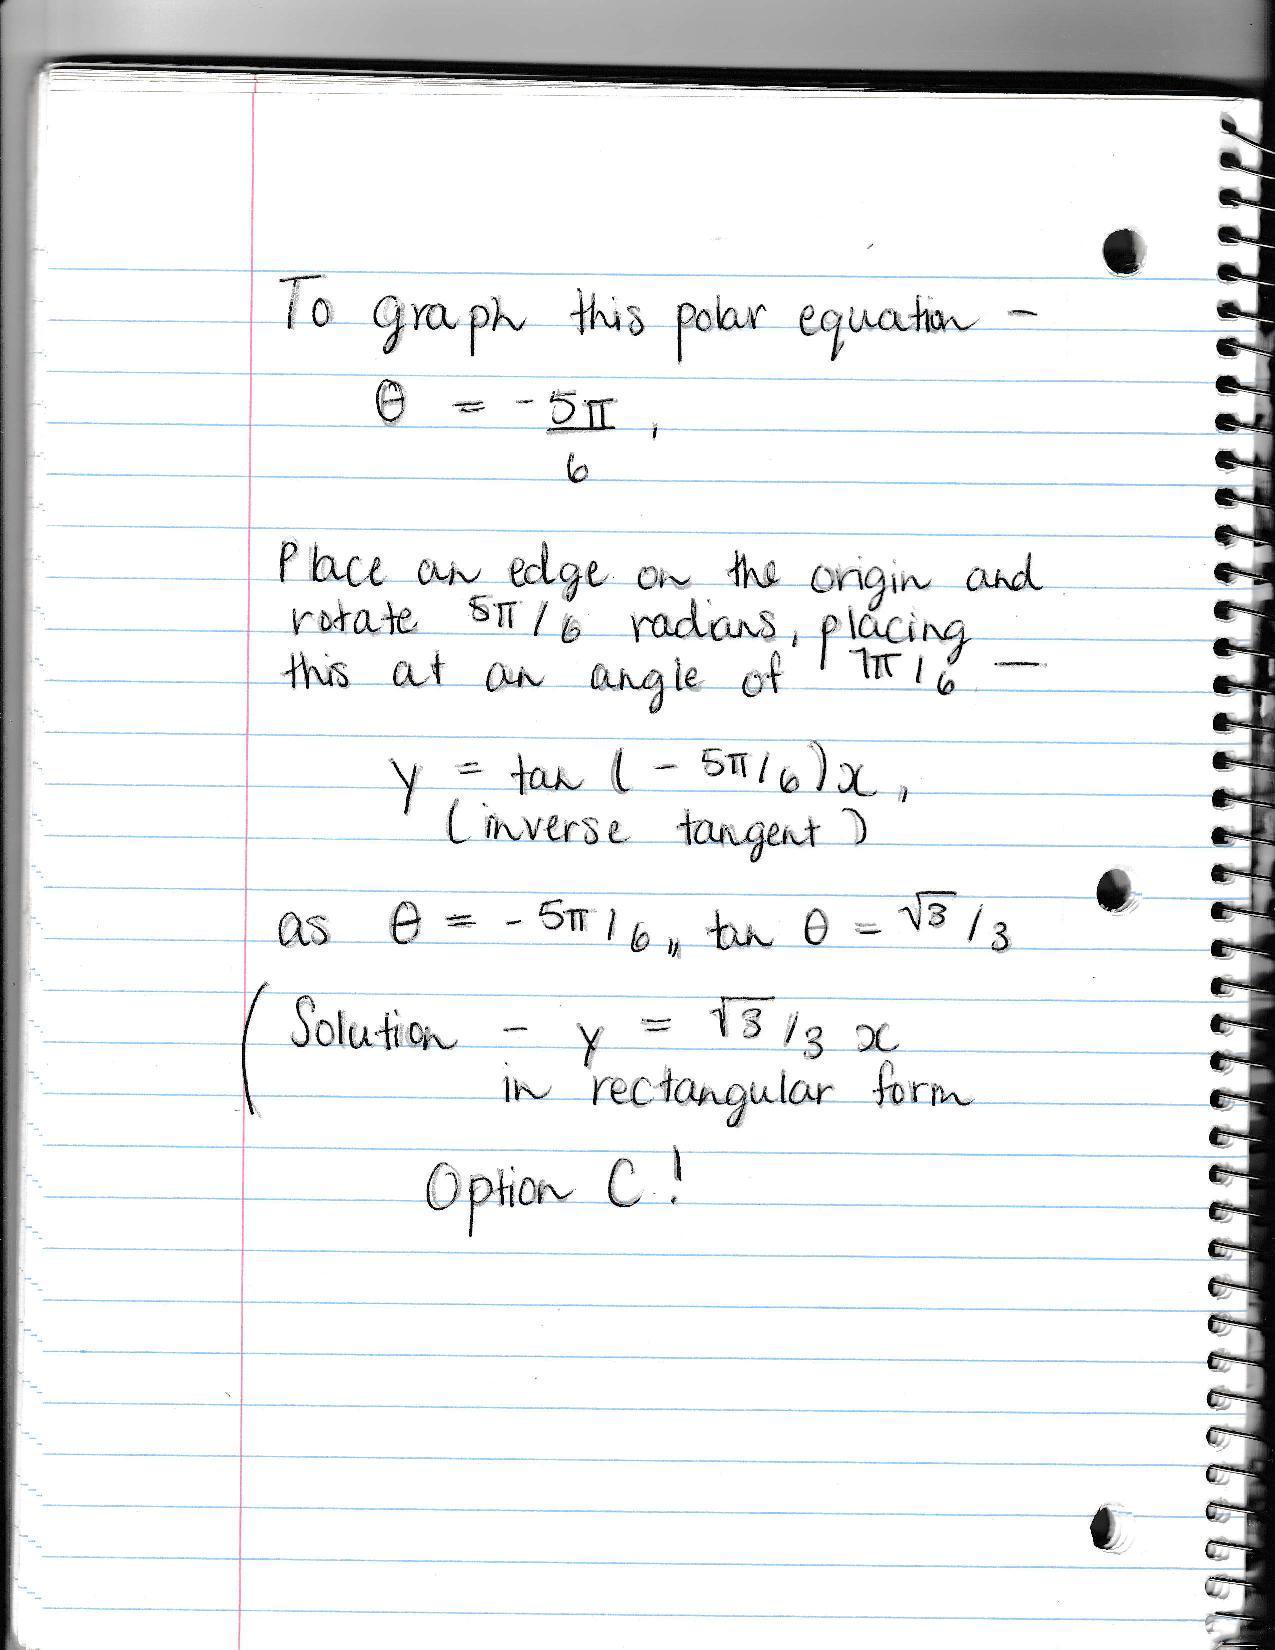 To graph this polar equation –
θ = -5π/6,
Place an edge on the origin and
rotate 5π/6 radians, placing
this at an angle of 7π/6 —
y = tan (-5π/6)x,
(inverse tangent)
as θ = -5π/6,, tan θ = √3/3
(Solution – y = √3/3 x
in rectangular form
Option C!